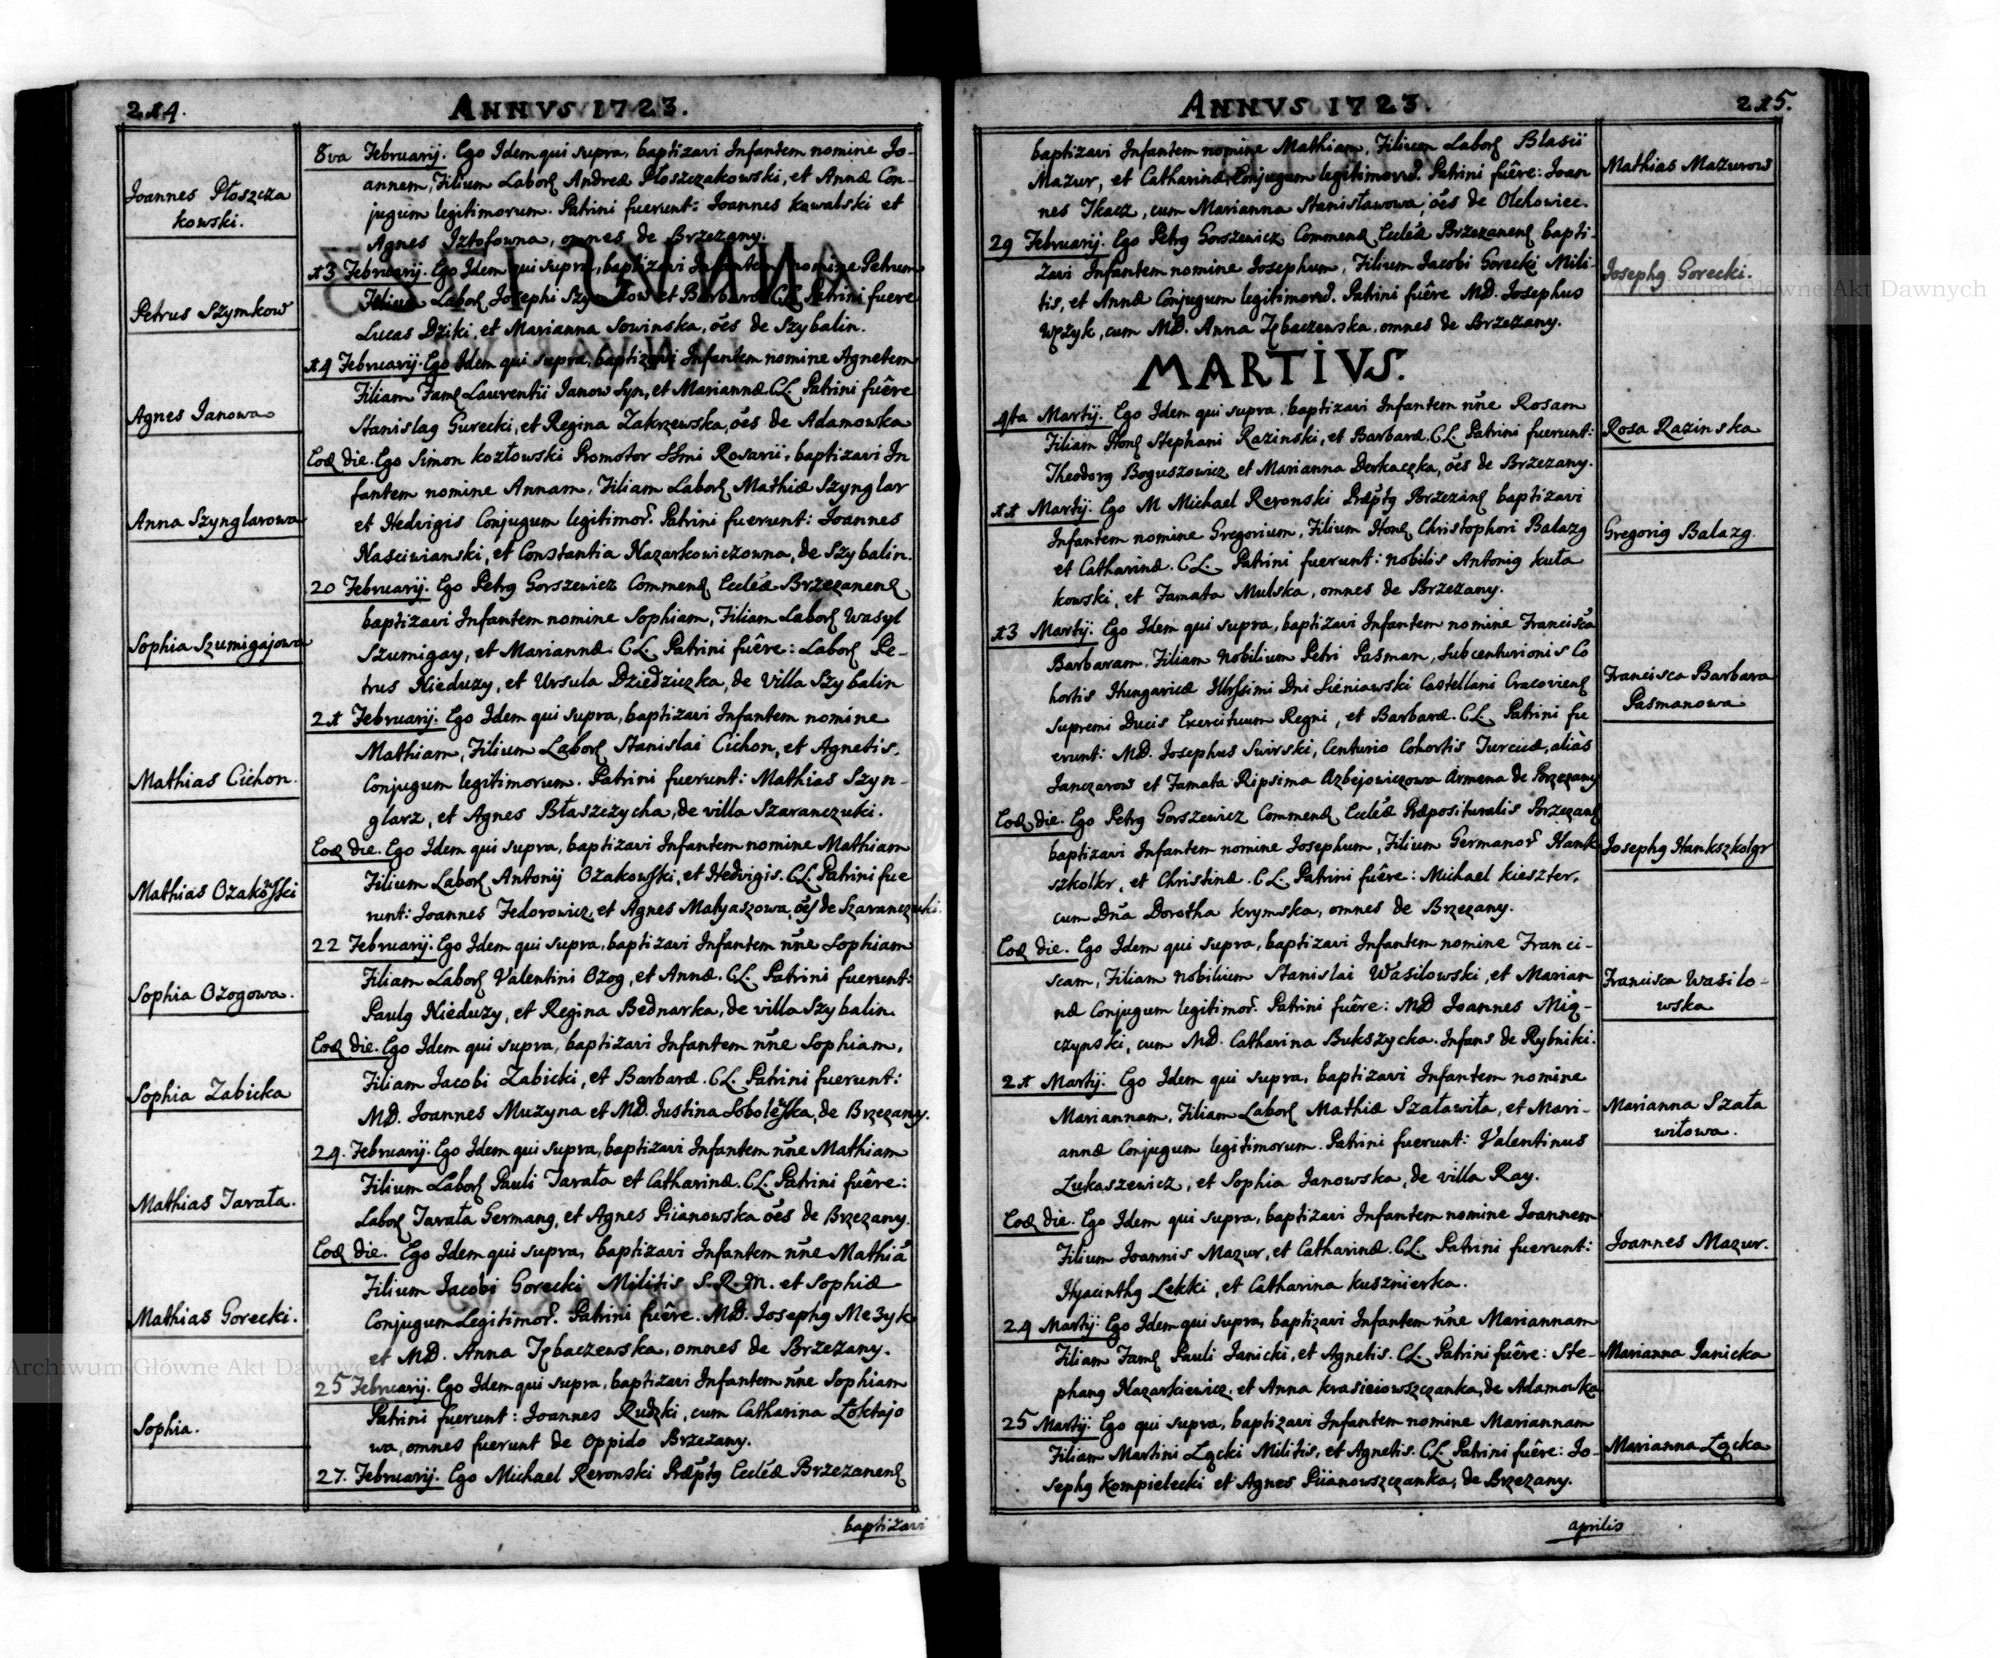 214.
ANNVS 1723.
Joannes Płoszcza
kowski.
Petrus Szymkow
Agnes Janowa
Anna Szynglarowa
Sophia Szumigajowa
Mathias Cichon.
Mathias Ozakowski
Sophia Ozogowa.
Sophia Zabicka
Mathias Tarata.
Mathias Gorecki.
Sophia.
8va Februarij. Ego Idem qui supra, baptizavi Infantem nomine Jo-
annem, Filium Labor Andreæ Płoszczakowski, et Annæ Con-
jugum legitimorum. Patrini fuerunt: Joannes Kowalski et
Agnes Iztofowna, omnes de Brzezany.
13 Februarij. Ego Idem qui supra, baptizavi Infantem nomine Petrum
Filium Labor Josephi Szymkow et Barbaræ CL. Patrini fuere
Lucas Dziki, et Marianna Sowinska, oēs de Szybalin.
14 Februarij. Ego Idem qui supra, baptizavi Infantem nomine Agnetem
Filiam Fam Laurentii Janow Syn, et Mariannæ CL. Patrini fuêre
Stanislaꝯ Gurecki, et Regina Zakrzewska, oēs de Adamowka
Eoꝺ die. Ego Simon Kozłowski Promotor SSmi Rosarii, baptizavi In
fantem nomine Annam, Filiam Labor Mathiæ Szynglar
et Hedvigis Conjugum legitimor. Patrini fuerunt: Joannes
Nasciwianski, et Constantia Nazarkowiczowna, de Szybalin.
20 Februarij. Ego Petrꝯ Gorszewicz Commend Eccleæ Brzezanen
baptizavi Infantem nomine Sophiam, Filiam Labor Wasyl
Szumigay, et Mariannæ. CL. Patrini fuêre: Labor Pe-
trus Nieduzy, et Ursula Dziedziczka, de Villa Szybalin
21 Februarij. Ego Idem qui supra, baptizavi Infantem nomine
Mathiam, Filium Labor Stanislai Cichon, et Agnetis.
Conjugum legitimorum. Patrini fuerunt: Mathias Szyn-
glarz, et Agnes Błaszczycha, de villa Szaranczuki.
Eoꝺ die. Ego Idem qui supra, baptizavi Infantem nomine Mathiam
Filium Labor Antonij Ozakowski, et Hedvigis. CL. Patrini fue
runt: Joannes Fedorowicz, et Agnes Matyaszowa, oēs de Szaranczuki.
22 Februarij. Ego Idem qui supra, baptizavi Infantem nn̄e Sophiam
Filiam Labor Valentini Ozog, et Annæ. CL. Patrini fuerunt:
Paulꝯ Nieduzy, et Regina Bednarka, de villa Szybalin.
Eoꝺ die. Ego Idem qui supra, baptizavi Infantem nn̄e Sophiam,
Filiam Jacobi Zabicki, et Barbaræ. CL. Patrini fuerunt:
MD. Joannes Muzyna et MD. Justina Sobolewska, de Brzezany.
24. Februarij. Ego Idem qui supra, baptizavi Infantem nn̄e Mathiam
Filium Labor Pauli Tarata et Catharinæ. CL. Patrini fuêre:
Labor Tarata Germanꝯ, et Agnes Piianowska oēs de Brzezany.
Eoꝺ die. Ego Idem qui supra, baptizavi Infantem nn̄e Mathiā
Filium Jacobi Gorecki Militis S. R. M. et Sophiæ
Conjugum Legitimor. Patrini fuêre. MD. Josephꝯ Mezyk
et MD. Anna Trbaczewska, omnes de Brzezany.
25 Februarij. Ego Idem qui supra, baptizavi Infantem nn̄e Sophiam
Patrini fuerunt: Joannes Rudzki, cum Catharina Łoktajo
wa, omnes fuerunt de Oppido Brzezany.
27. Februarij. Ego Michael Revonski Præptꝯ Eccleæ Brzezanen
baptizavi
ANNVS 1723.
215.
baptizavi Infantem nomine Mathiam, Filium Labor Blasii
Mazur, et Catharinæ Conjugum legitimorum. Patrini fuêre: Joan
nes Tkacz, cum Marianna Stanisławowa, oēs de Olchowiec.
29 Februarij. Ego Petrꝯ Gorszewicz Commend Eccleæ Brzezanen bapti-
zavi Infantem nomine Josephum, Filium Jacobi Gorecki Mili-
tis, et Annæ Conjugum legitimorum. Patrini fuêre MD. Josephus
Wężyk, cum MD. Anna Trbaczewska, omnes de Brzezany.
MARTIVS.
4ta Martij. Ego Idem qui supra, baptizavi Infantem nn̄e Rosam
Filiam Hon Stephani Razinski, et Barbaræ. CL. Patrini fuerunt:
Theodorꝯ Boguszowicz et Marianna Derkaczka, oēs de Brzezany.
11 Martij. Ego M Michael Revonski Præptꝯ Brzezan baptizavi
Infantem nomine Gregorium, Filium Hon Christophori Balazꝯ
et Catharinæ. CL. Patrini fuerunt: nobilis Antoniꝯ Kuła
kowski, et Famata Mulska, omnes de Brzezany.
13 Martij. Ego Idem qui supra, baptizavi Infantem nomine Franciscā
Barbaram, Filiam Nobilium Petri Pasman, Subcenturionis Co
hortis Hungaricæ Illrssimi Dni Sieniawski Castellani Cracovien
Supremi Ducis Exercituum Regni, et Barbaræ. CL. Patrini fu
erunt: MD. Josephus Swirski, Centurio Cohortis Turcicæ, aliàs
Janczarow et Famata Ripsima Azbejowiczowa Armena de Brzezany
Eoꝺ die. Ego Petrꝯ Gorszewicz Commend Eccleæ Præposituralis Brzezan
baptizavi Infantem nomine Josephum, Filium Germanor Hank
szkolkr, et Christinæ. CL. Patrini fuêre: Michael Kieszter,
cum Dnā Dorotha Krymska, omnes de Brzezany.
Eoꝺ die. Ego Idem qui supra, baptizavi Infantem nomine Franci-
scam, Filiam nobilium Stanislai Wasilowski, et Marian
næ Conjugum legitimor. Patrini fuêre: MD Joannes Mią-
czynski, cum MD. Catharina Bukszycka. Infans de Rybniki.
21 Martij. Ego Idem qui supra, baptizavi Infantem nomine
Mariannam, Filiam Labor Mathiæ Szatawiła, et Mari-
annæ Conjugum legitimorum. Patrini fuerunt: Valentinus
Lukaszewicz, et Sophia Janowska, de villa Ray.
Eoꝺ die. Ego Idem qui supra, baptizavi Infantem nomine Joannem
Filium Joannis Mazur, et Catharinæ. CL. Patrini fuerunt:
Hyacinthꝯ Lekki, et Catharina Kusznierka.
24 Martij. Ego Idem qui supra, baptizavi Infantem nn̄e Mariannam
Filiam Fam Pauli Janicki, et Agnetis. CL. Patrini fuêre: Ste-
phanꝯ Nazarkiewicz, et Anna Krasiciowszczanka, de Adamowka
25 Martij. Ego qui supra, baptizavi Infantem nomine Mariannam
Filiam Martini Łącki Militis, et Agnetis. CL. Patrini fuêre: Jo
sephꝯ Kompielecki et Agnes Piianowszczanka, de Brzezany.
Mathias Mazurow
Josephꝯ Gorecki.
Rosa Razinska
Gregoriꝯ Balazꝯ.
Francisca Barbara
Pasmanowa
Josephꝯ Hankszkolgr
Francisca Wasilo-
wska
Marianna Szata
wiłowa.
Joannes Mazur.
Marianna Janicka
Marianna Łącka
aprilis
Archiwum Główne Akt Dawnych
Archiwum Główne Akt Dawnych